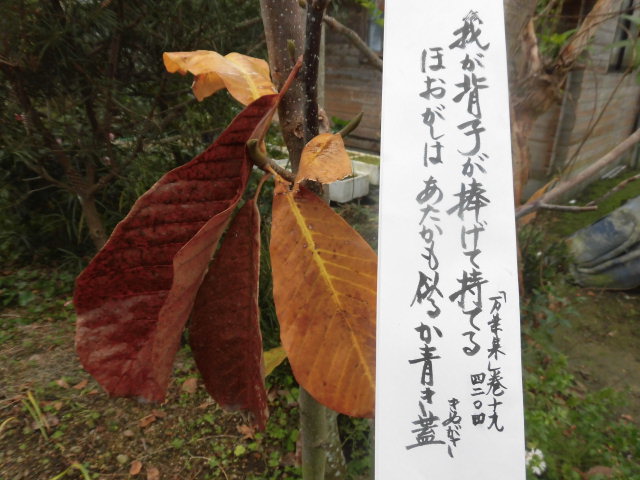 我が背子が捧げて持てる
ほおがしは あたかも似るか青き蓋
きぬがさ
「万葉集」巻十九
四二〇四